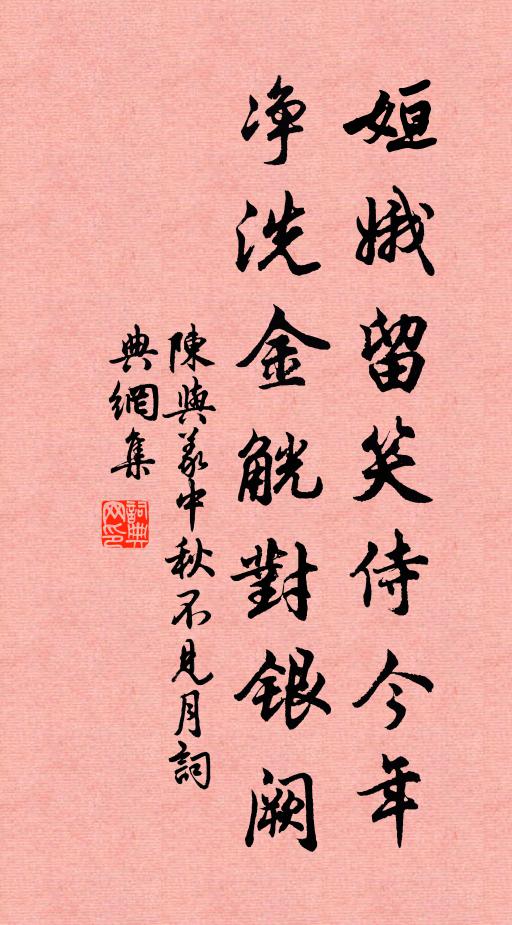 姮娥留笑侍今年
净洗金觥對銀阙
陳與義中秋不見月詞
典網集
詞典網印